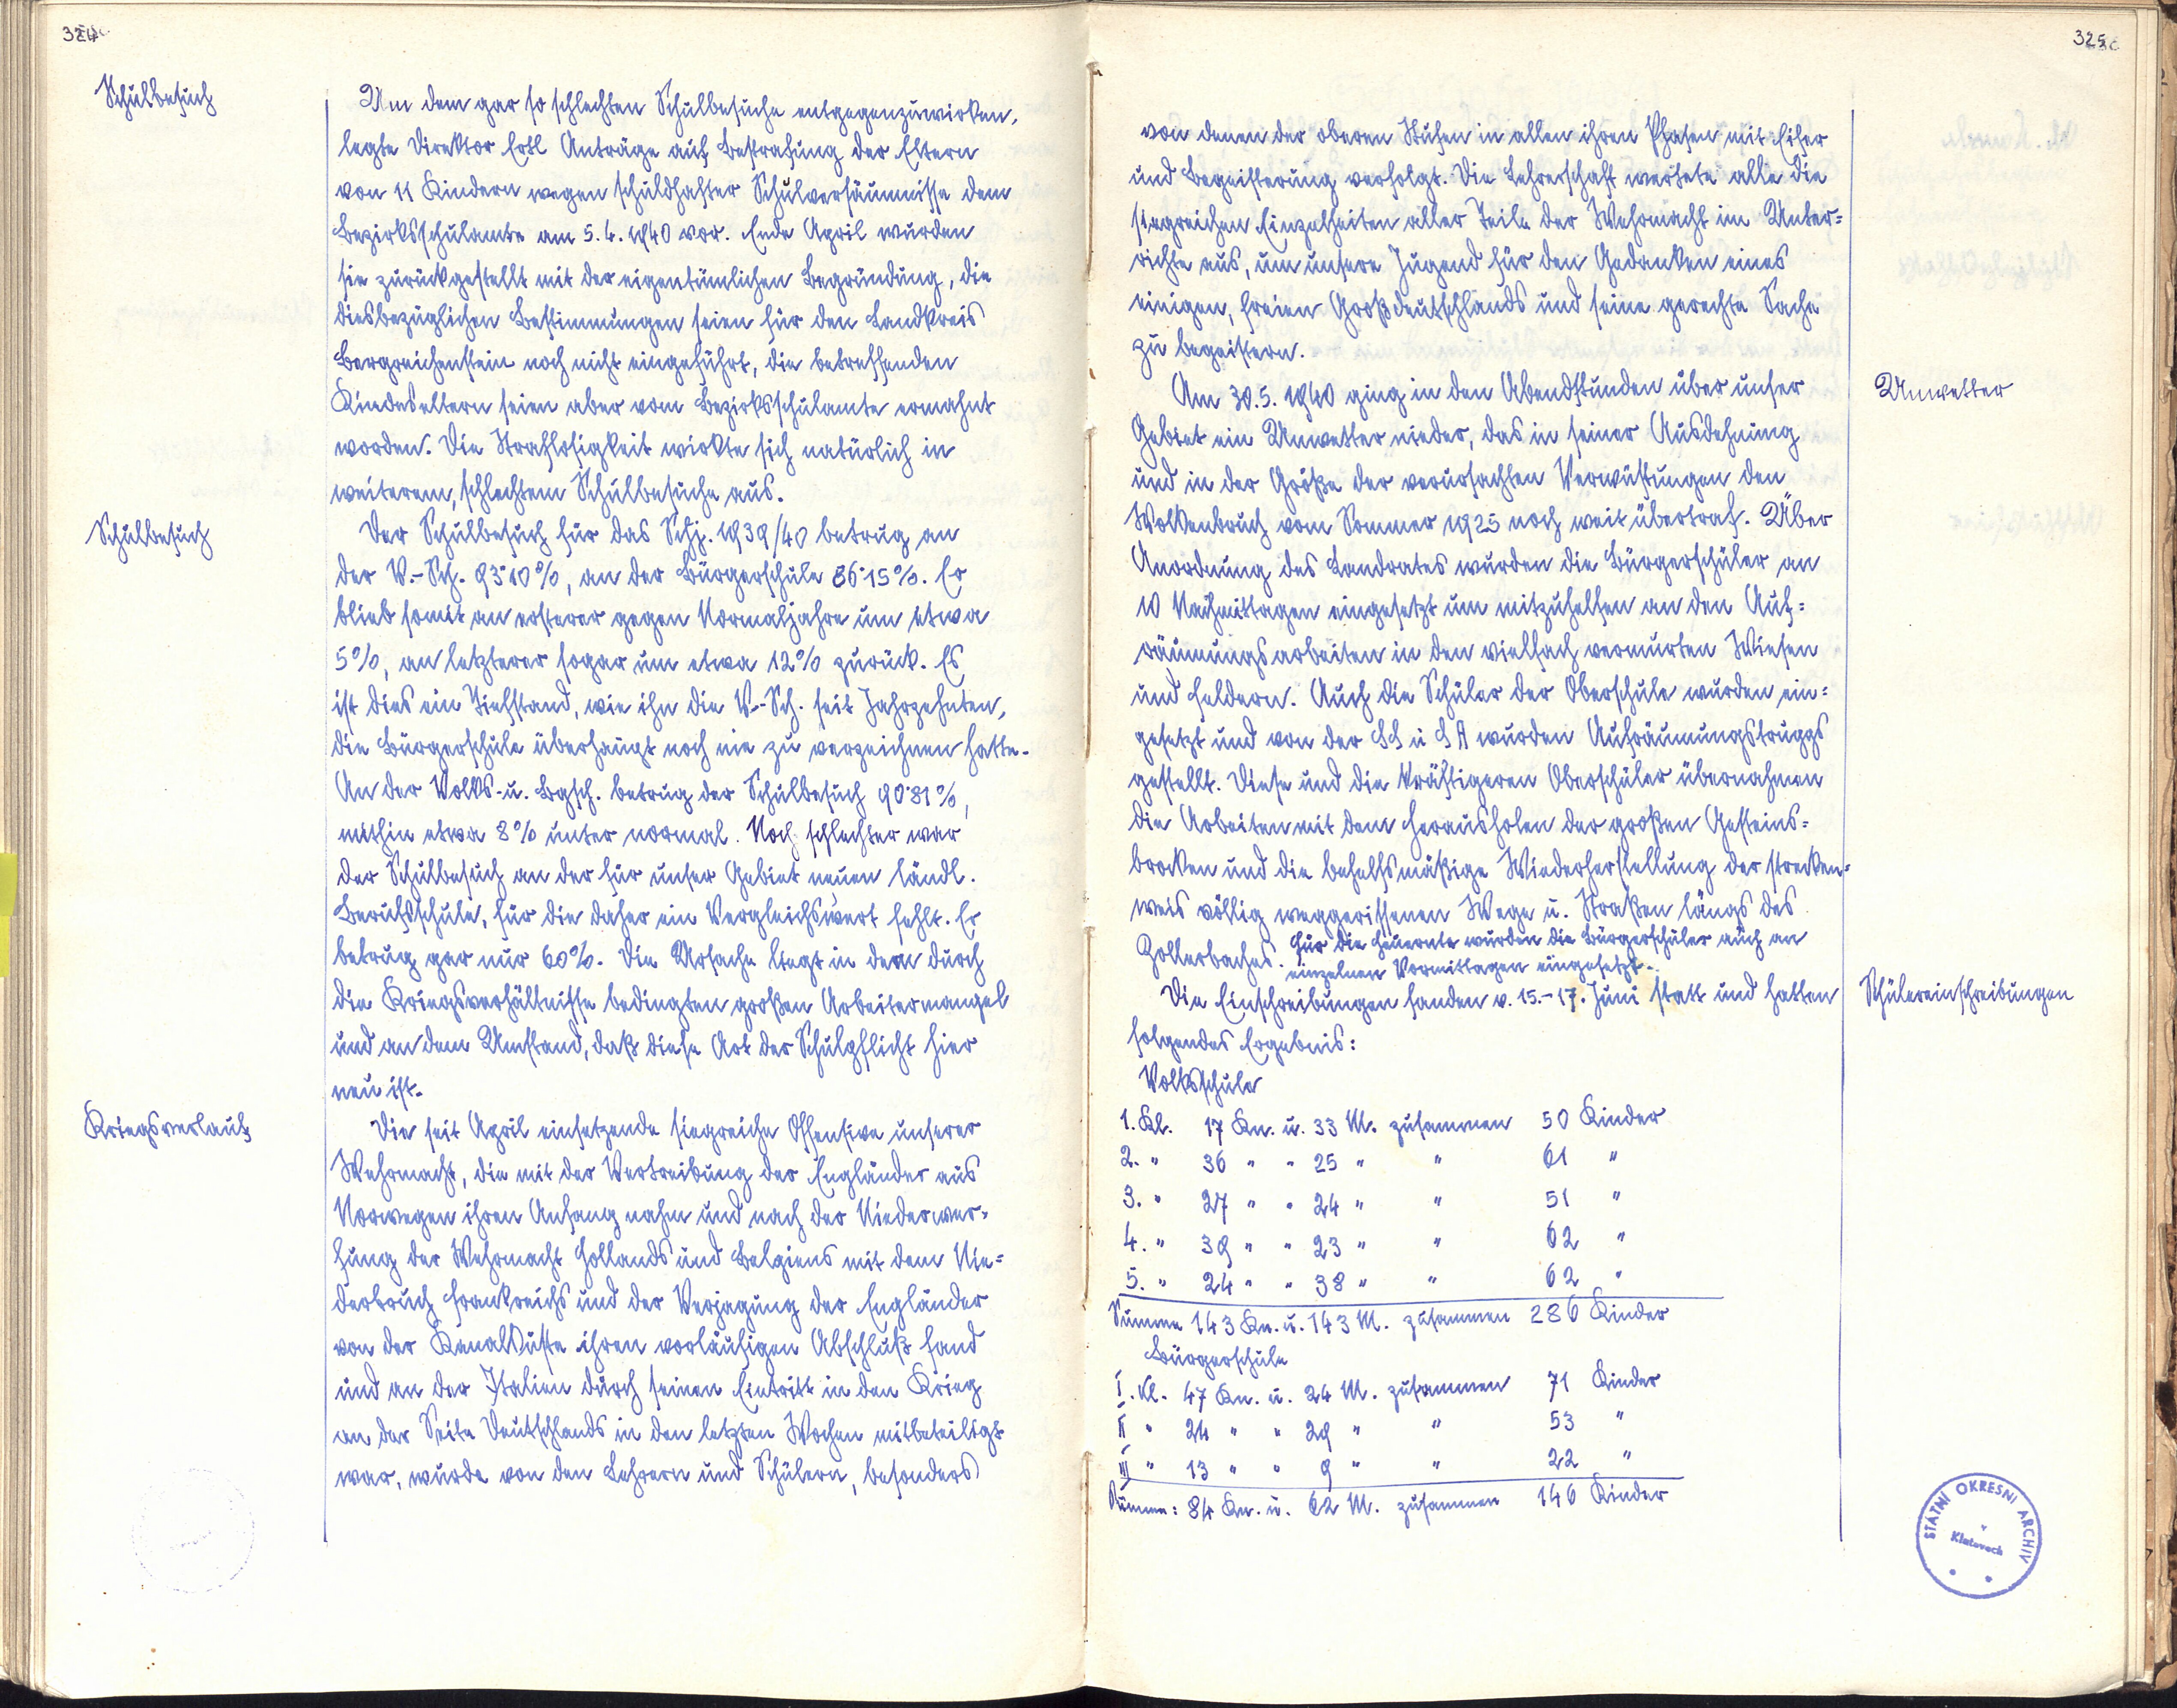 324
Schulbesuch
Um dem gar so schlechten Schulbesuche entgegenzuwirken,
legte Direktor Ertl Anträge auf Bestrafung der Eltern
von 11 Kindern wegen schuldhafter Schulversäumnisse dem
Bezirksschulamte am 5.4.1940 vor. Ende April wurden
sie zurückgestellt mit der eigentümlichen Begründung, die
diesbezüglichen Bestimmungen seien für den Landkreis
Bergreichenstein noch nicht eingeführt, die betreffenden
Kindeseltern seien aber vom Bezirksschulamte ermahnt
worden. Die Straflosigkeit wirkte sich natürlich in
weiterem, schlechtem Schulbesuche aus.
Schulbesuch
Der Schulbesuch für das Schj. 1939/40 betrug an
der V.-Sch. 93·10%, an der Bürgerschule 86·15%. Er
blieb somit an ersterer gegen Normaljahre um etwa
5%, an letzterer sogar um etwa 12% zurück. Es
ist dies ein Tiefstand, wie ihn die V.-Sch. seit Jahrzehnten,
die Bürgerschule überhaupt noch nie zu verzeichnen hatte.
An der Volks- u. Bgsch. betrug der Schulbesuch 90·81%,
mithin etwa 8% unter normal. Noch schlechter war
der Schulbesuch an der für unser Gebiet neuen ländl.
Berufsschule, für die daher ein Vergleichswert fehlt. Er
betrug gar nur 60%. Die Ursache liegt in dem durch
die Kriegsverhältnisse bedingten großen Arbeitermangel
und an dem Umstand, daß diese Art der Schulpflicht hier
neu ist.
Kriegsverlauf
Die seit April einsetzende siegreiche Offensive unserer
Wehrmacht, die mit der Vertreibung der Engländer aus
Norwegen ihren Anfang nahm und nach der Niederwer-
fung der Wehrmacht Hollands und Belgiens mit dem Nie=
derbruch Frankreichs und der Verjagung der Engländer
von der Kanalküste ihren vorläufigen Abschluß fand
und an der Italien durch seinen Eintritt in den Krieg
an der Seite Deutschlands in den letzten Wochen mitbeteiligt
war, wurde von den Lehrern und Schülern, besonders
325
von denen der oberen Stufen in allen ihren Phasen mit Eifer
und Begeisterung verfolgt. Die Lehrerschaft wertete alle die
siegreichen Einzelheiten aller Teile der Wehrmacht im Unter=
richte aus, um unsere Jugend für den Gedanken eines
einigen, freien Großdeutschlands und seine gerechte Sache
zu begeistern.
Unwetter
Am 30.5.1940 ging in den Abendstunden über unser
Gebiet ein Unwetter nieder, das in seiner Ausdehnung
und in der Größe der verursachten Verwüstungen den
Wolkenbruch vom Sommer 1925 noch weit übertraf. Über
Anordnung des Landrates wurden die Bürgerschüler an
10 Nachmittagen eingesetzt um mitzuhelfen an den Auf=
räumungsarbeiten in den vielfach vermurten Wiesen
und Feldern. Auch die Schüler der Oberschule wurden ein=
gesetzt und von der SS u SA wurden Aufräumungstrupps
gestellt. Diese und die kräftigeren Oberschüler übernahmen
die Arbeiten mit dem Herausholen der großen Gesteins=
brocken und die behelfsmäßige Wiederherstellung der strecken=
weis völlig weggerissenen Wege u. Straßen längs des
Zollerbaches. Für die Heuernte wurden die Bürgerschüler auch an
einzelnen Vormittagen eingesetzt.
Schülereinschreibungen
Die Einschreibungen fanden v. 15.-17. Juni statt und hatten
folgendes Ergebnis:
Volksschule
1. Kl. 17 Kn. u. 33 M. zusammen 50 Kinder
2. " 36 " " 25 " " 61 "
3. " 27 " " 24 " " 51 "
4. " 39 " " 23 " " 62 "
5. " 24 " " 38 " " 62 "
Summe 143 Kn. u. 143 M. zusammen 286 Kinder
Bürgerschule
I. Kl. 47 Kn. u. 24 M. zusammen 71 Kinder
II " 24 " " 29 " " 53 "
III " 13 " " 9 " " 22 "
Summe: 84 Kn. u. 62 M. zusammen 146 Kinder
STÁTNÍ OKRESNÍ ARCHIV
v
Klatovech